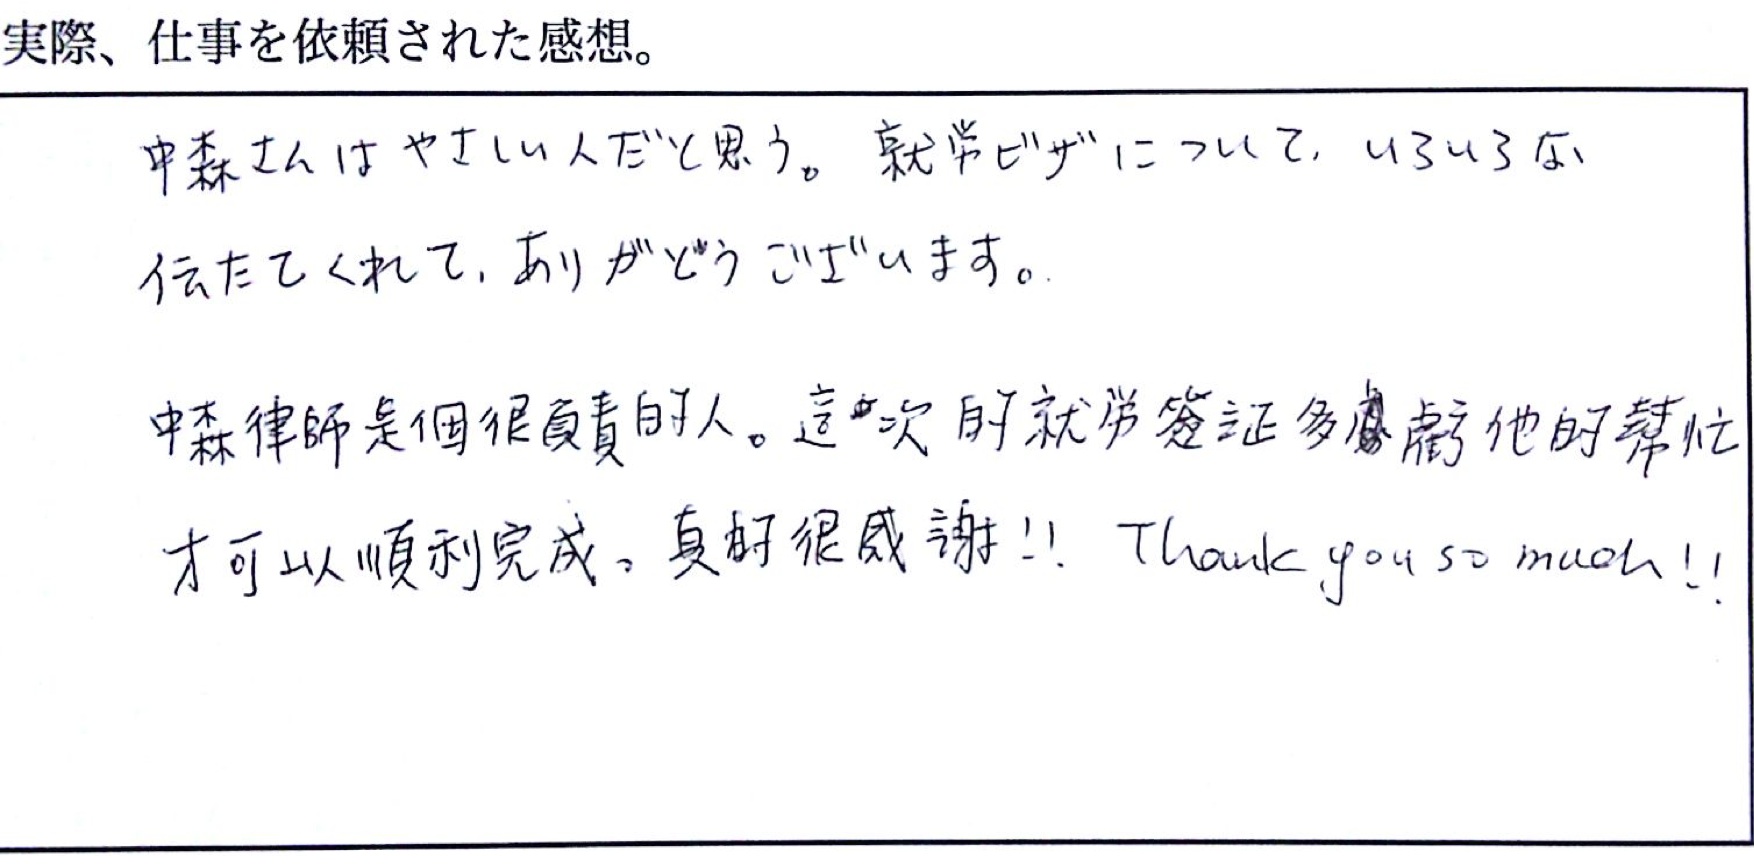 実際、仕事を依頼された感想。
中森さんはやさしい人だと思う。就労ビザについて、いろいろな
伝たてくれて、ありがどうございます。
中森律師是個很負責的人。這次的就労簽証多虧他的幫忙
才可以順利完成。真的很感謝!! Thank you so much!!